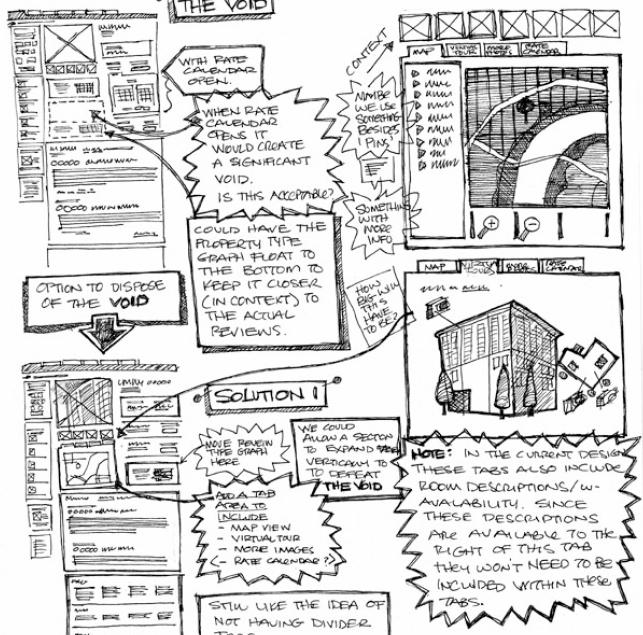 THE VOID
WITH RATE
CALENDAR
OPEN.
WHEN RATE
CALENDAR
OPENS IT
WOULD CREATE
A SIGNIFICANT
VOID.
IS THIS ACCEPTABLE?
COULD HAVE THE
PROPERTY TYPE
GRAPH FLOAT TO
THE BOTTOM TO
KEEP IT CLOSER
(IN CONTEXT) TO
THE ACTUAL
REVIEWS.
OPTION TO DISPOSE
OF THE VOID
CONTEXT
MAYBE
WE USE
SOMETHING
BESIDES
PINS?
SOMETHING
WITH
MORE
INFO
HOW
BIG WILL
THIS
HAVE
TO BE?
MAP
VIRTUAL
TOUR
MORE
PHOTOS
RATE
CALENDAR
MAP
VIRTUAL
TOUR
MORE
RATE
CALENDAR
SOLUTION 1
MOVE REVEIW
TYPE GRAPH
HERE
WE COULD
ALLOW A SECTION
TO EXPAND
VERTICALLY TO
TO DEFEAT
THE VOID
ADD A TAB
AREA TO
INCLUDE
- MAP VIEW
- VIRTUAL TOUR
- MORE IMAGES
(- RATE CALENDAR ?)
STILL LIKE THE IDEA OF
NOT HAVING DIVIDER
NOTE: IN THE CURRENT DESIGN
THESE TABS ALSO INCLUDE
ROOM DESCRIPTIONS/W-
AVAILABILITY. SINCE
THESE DESCRIPTIONS
ARE AVAILABLE TO THE
RIGHT OF THIS TAB
THEY WON'T NEED TO BE
INCLUDED WITHIN THESE
TABS.